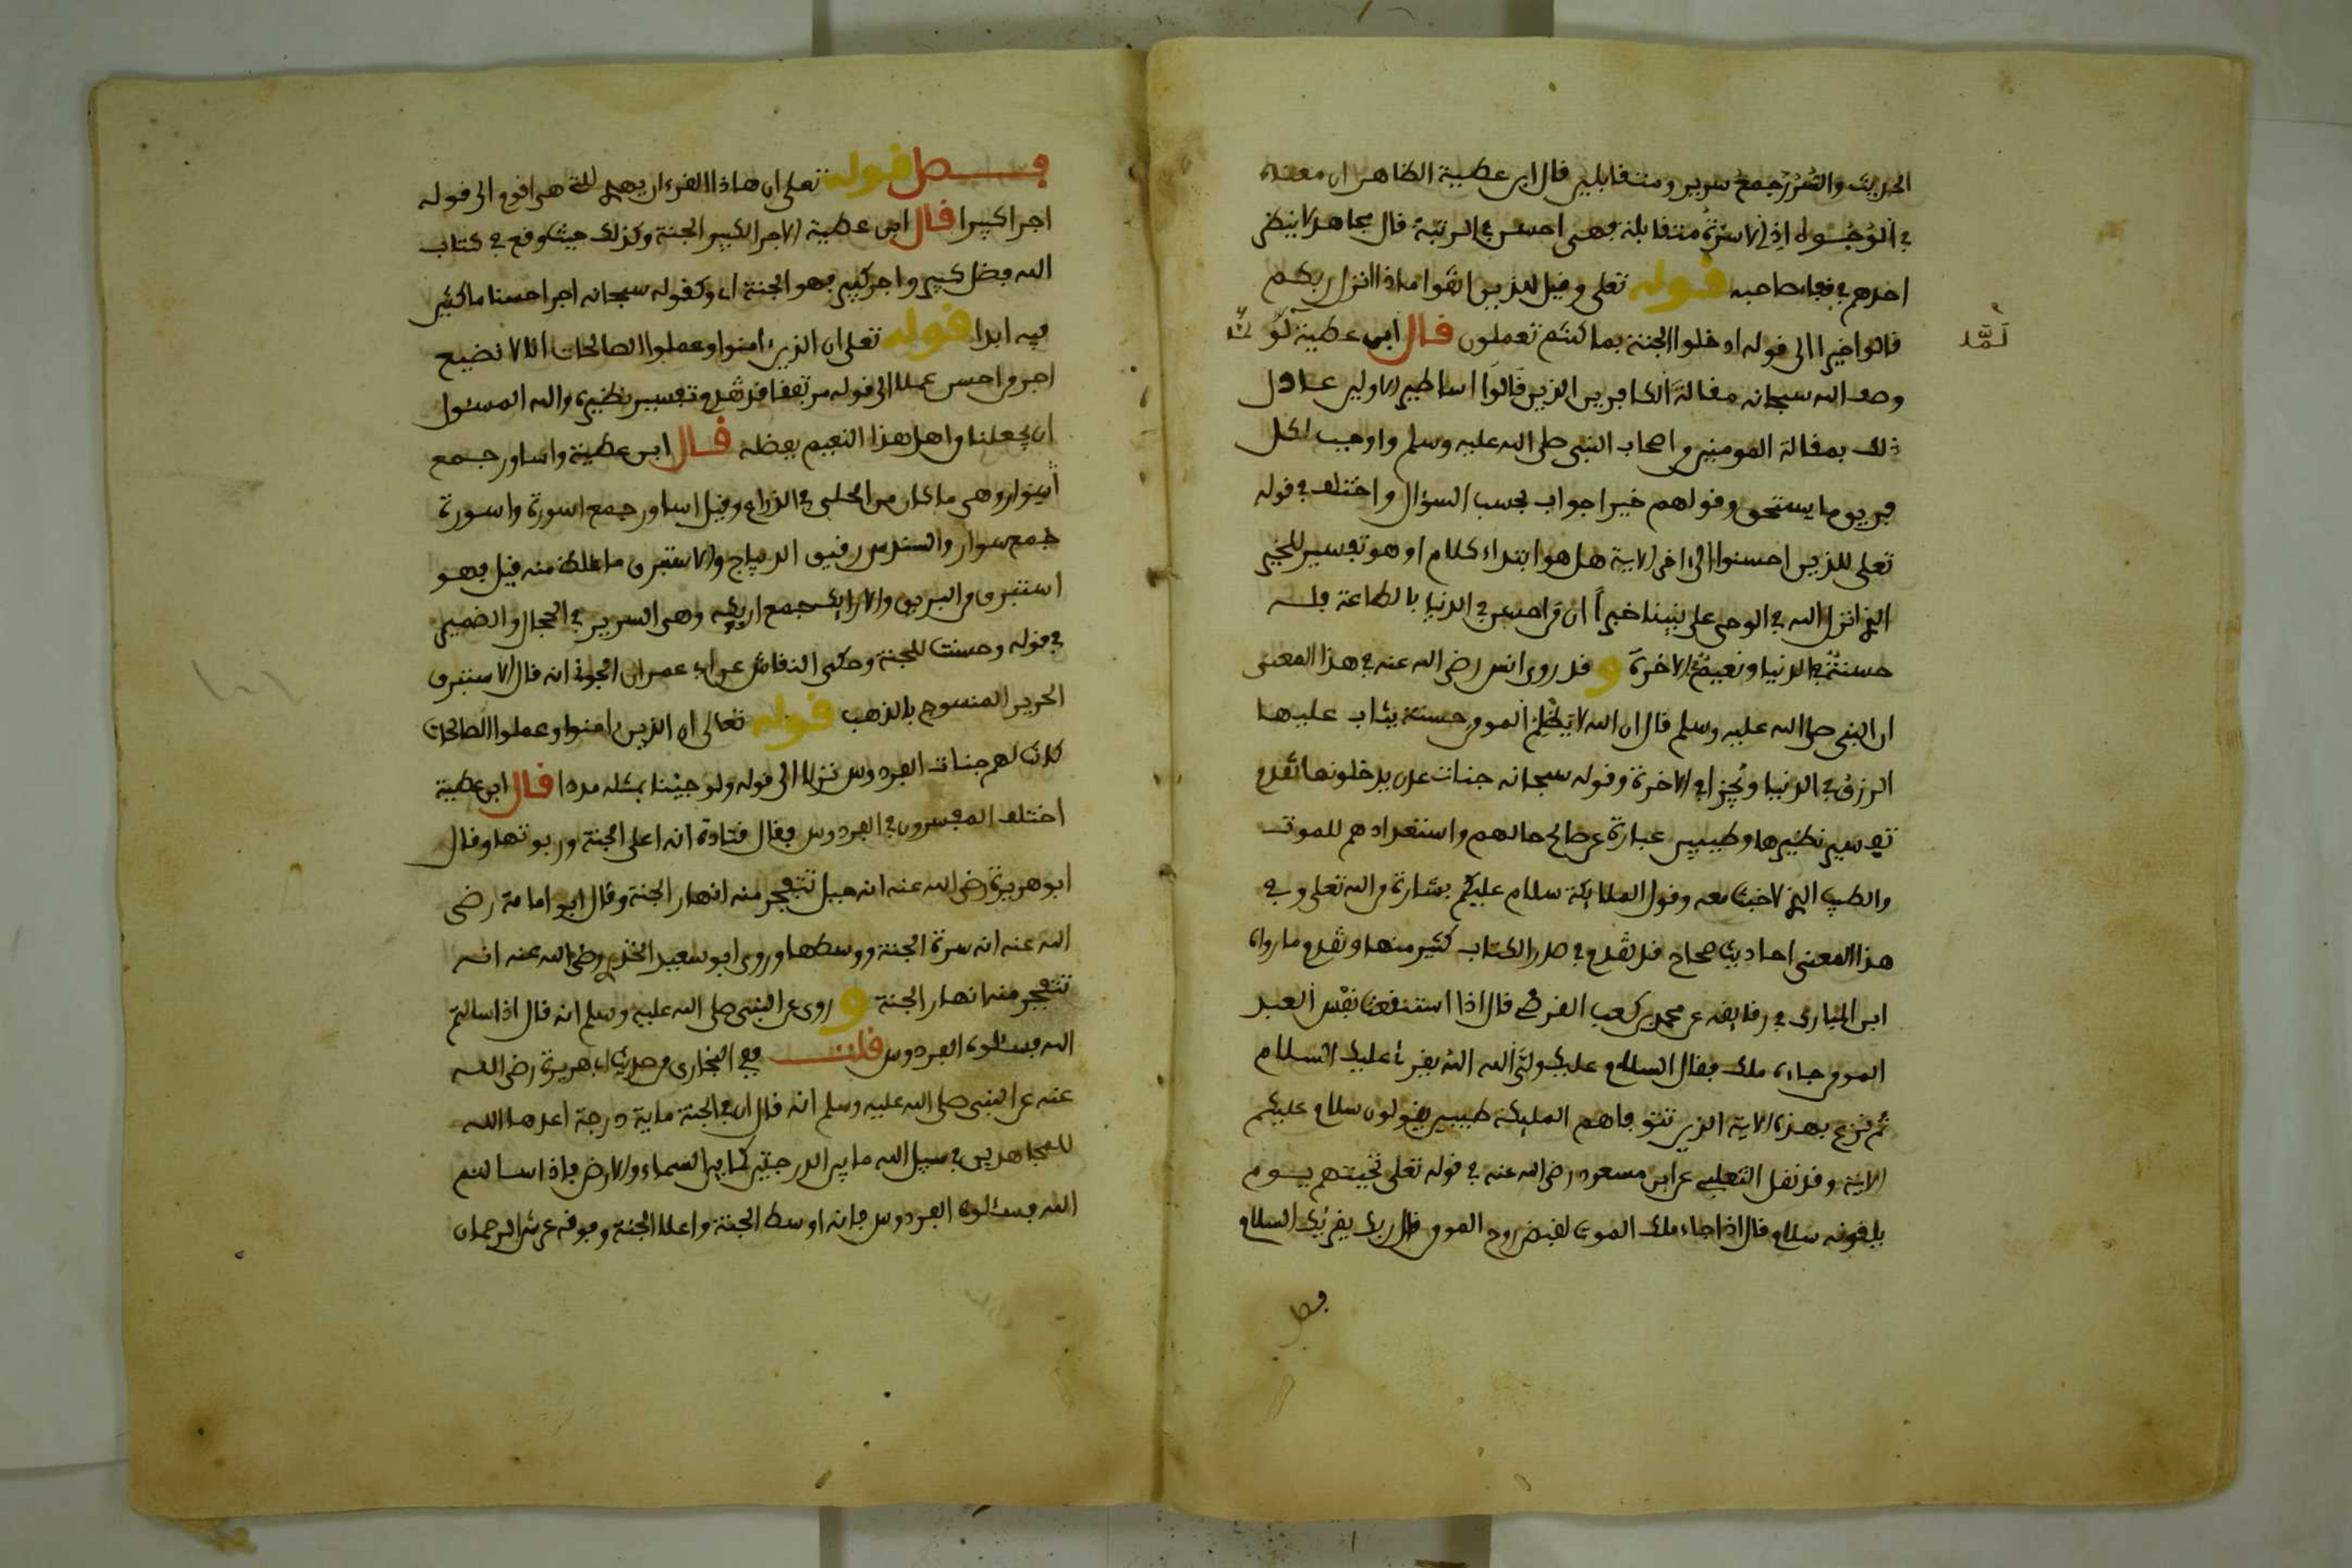 الحديث والسُّرُر جمع سرير ومتقابلين قال ابن عطية الظاهر ان معناه
في الوُجُوه اذ الاسرّة متقابلة فهي احسن في الرتبة قال مجاهد لا ينظر
احدهم في قفا صاحبه قوله تعلى وقيل للذين اتقوا ماذا انزل ربكم
قالوا خيرا الى قوله ادخلوا الجنة بما كنتم تعملون قال ابن عطية
لَمَّا
وصف الله سبحانه مقالةَ الكافرين الذين قالوا اساطير الاولين عادل
ذلك بمقالة المومنين من اصحاب النبي صلى الله عليه وسلم واوجب لكل
فريق ما يستحق وقولهم خيرا جواب بحسب السؤال واختلف في قوله
تعلى للذين احسنوا الى اخر الاية هل هو ابتداء كلام او هو تفسير للخير
الذي انزل الله في الوحي على نبينا خيراً ان من احسن في الدنيا بالطاعة فله
حسنةٌ في الدنيا ونعيمٌ في الاخرة و قد روى انس رضي الله عنه في هذا المعنى
ان النبي صلى الله عليه وسلم قال ان الله لا يَظْلِمُ المومن حسنة يثاب عليها
الرزق في الدنيا ويُجزا في الاخرة وقوله سبحانه جنات عدن يدخلونها تقدم
تفسير نظيرها وطيبين عبارة عن صالح حالهم واستعدادهم للموت
والطيب الذي لا خبث معه وقول الملايكة سلام عليكم بشارة من الله تعلى وفي
هذا المعنى احاديث صحاح قد تقدم في صدر الكتاب كثير منها وتقدم ما رواه
ابن المبارك في رقايقه عن محمد بن كعب القرظي قال اذا استنقعت نفْس العبد
المومن جاءه ملك فقال السلام عليك وليَّ الله الله يقرئ عليك السلام
ثم نزع بهذه الاية الذين تتوفاهم المليكة طيبين يقولون سلام عليكم
الاية وقد نقل الثعلبي عن ابن مسعود رضي الله عنه في قوله تعلى تحيتهم يوم
يلقونه سلام قال اذا جاء ملك الموت لقبض روح المومن قال ربك يقرئك السلام
فصل
فصل قوله تعلى ان هاذا القرءان يهدي للتي هي اقوم الى قوله
اجرا كبيرا قال ابن عطية الاجر الكبير الجنة وكذلك حيث وقع في كتاب
الله فضل كبير واجر كبير فهو الجنة اي وكقوله سبحانه اجرا حسنا ماكثين
فيه ابدا قوله تعلى ان الذين ءامنوا وعملوا الصالحات انا لا نضيع
اجر من احسن عملا الى قوله مرتفقا قد تقدم تفسير نظيره والله المسئول
ان يجعلنا من اهل هذا النعيم بفضله قال ابن عطية واساور جمع
أسوار وهي ما كان من الحلي في الذراع وقيل اساور جمع اسورة واسورة
جمع سوار والسندس رقيق الديباج والاستبرق ما غلظ منه قيل فهو
استبرق من البريق والارايك جمع اريكه وهي السرير في الحجال والضمير
في قوله وحسنت للجنة وحكى النقاش عن ابي عمران الجوني انه قال الاستبرق
الحرير المنسوج بالذهب قوله تعالى ان الذين ءامنوا وعملوا الصالحات
كانت لهم جنات الفردوس نزلا الى قوله ولو جئنا بمثله مددا قال ابن عطية
اختلف المفسرون في الفردوس فقال قتادة انه اعلى الجنة وربوتها وقال
ابو هريرة رضي الله عنه انه جبل تتفجر منه انهار الجنة وقال ابو امامة رضي
الله عنه انه سرة الجنة ووسطها وروى ابو سعيد الخدري رضي الله عنه انه
تتفجر منه انهار الجنة و روي عن النبي صلى الله عليه وسلم انه قال اذا سالتم
الله فسئلوه الفردوس قلت ففي البخاري من حديث ابي هريرة رضي الله
عنه عن النبي صلى الله عليه وسلم انه قال ان في الجنة ماية درجة اعدها الله
للمجاهدين في سبيل الله ما بين الدرجتين كما بين السماء والارض فاذا سالتم
الله فسئلوه الفردوس فانه اوسط الجنة واعلا الجنة وفوقه عرش الرحمان